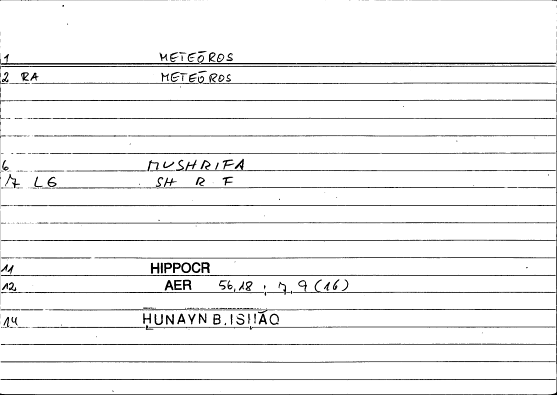 1 METEŌROS
2 RA METEŌROS
6 MUSHRIFA
17 LG SH R F
11 HIPPOCR
12 AER 56,18 ; 7, 9 (16)
14 ḤUNAYN B. ISḤĀQ